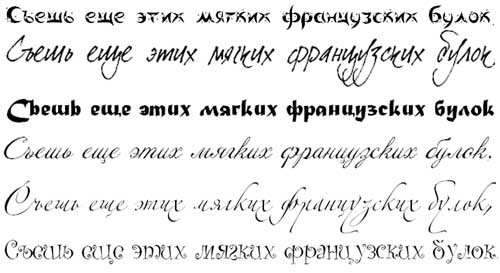 Съешь еще этих мягких французских булок
Съешь еще этих мягких французских булок,
Съешь еще этих мягких французских булок
Съешь еще этих мягких французских булок.
Съешь еще этих мягких французских булок,
Съешь еще этих мягких французских булок.